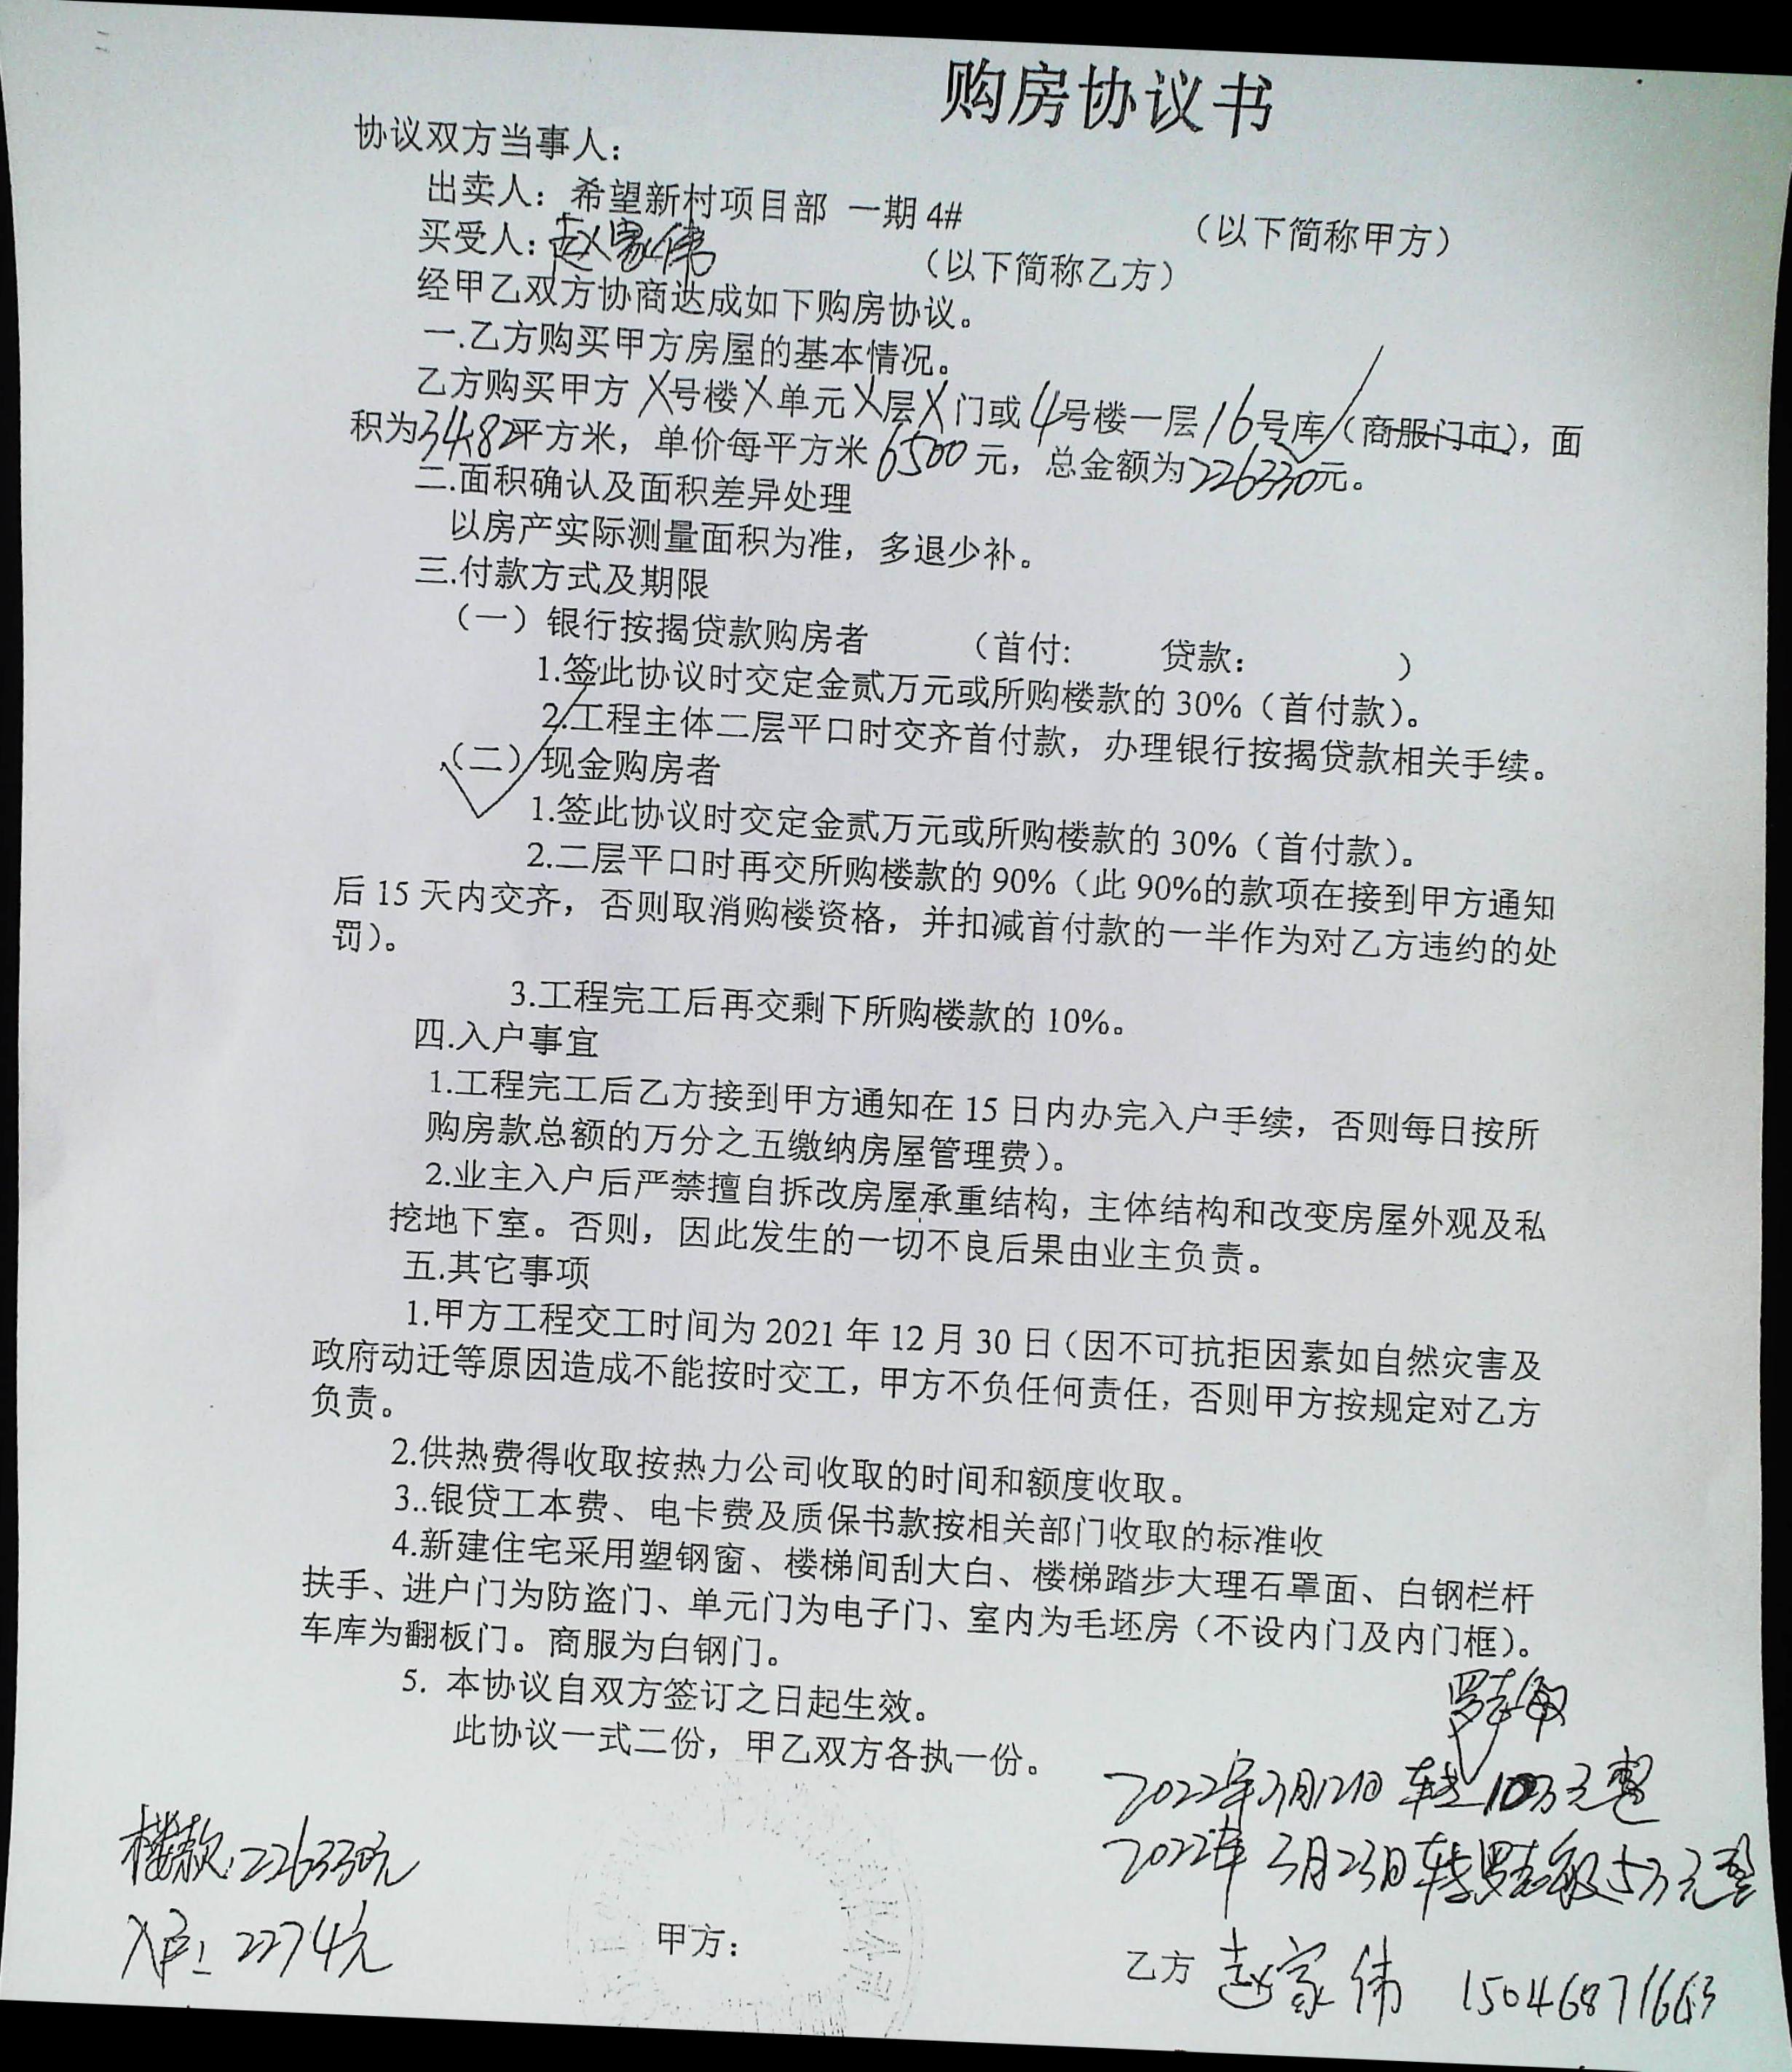 购房协议书
协议双方当事人：
出卖人：希望新村项目部 一期4# （以下简称甲方）
买受人：赵家伟 （以下简称乙方）
经甲乙双方协商达成如下购房协议。
一.乙方购买甲方房屋的基本情况。
乙方购买甲方X号楼X单元X层X门或4号楼一层16号库（商服门市），面
积为34.82平方米，单价每平方米6500元，总金额为226330元。
二.面积确认及面积差异处理
以房产实际测量面积为准，多退少补。
三.付款方式及期限
（一）银行按揭贷款购房者 （首付: 贷款： ）
1.签此协议时交定金贰万元或所购楼款的30%（首付款）。
2.工程主体二层平口时交齐首付款，办理银行按揭贷款相关手续。
（二）现金购房者
1.签此协议时交定金贰万元或所购楼款的30%（首付款）。
2.二层平口时再交所购楼款的90%（此90%的款项在接到甲方通知
后15天内交齐，否则取消购楼资格，并扣减首付款的一半作为对乙方违约的处
罚）。
3.工程完工后再交剩下所购楼款的10%。
四.入户事宜
1.工程完工后乙方接到甲方通知在15日内办完入户手续，否则每日按所
购房款总额的万分之五缴纳房屋管理费）。
2.业主入户后严禁擅自拆改房屋承重结构，主体结构和改变房屋外观及私
挖地下室。否则，因此发生的一切不良后果由业主负责。
五.其它事项
1.甲方工程交工时间为2021年12月30日（因不可抗拒因素如自然灾害及
政府动迁等原因造成不能按时交工，甲方不负任何责任，否则甲方按规定对乙方
负责。
2.供热费得收取按热力公司收取的时间和额度收取。
3..银贷工本费、电卡费及质保书款按相关部门收取的标准收
4.新建住宅采用塑钢窗、楼梯间刮大白、楼梯踏步大理石罩面、白钢栏杆
扶手、进户门为防盗门、单元门为电子门、室内为毛坯房（不设内门及内门框）。
车库为翻板门。商服为白钢门。
5. 本协议自双方签订之日起生效。
此协议一式二份，甲乙双方各执一份。
罗志敏
2022年3月12日 转 10万元整
2022年3月23日转罗志敏5万元整
楼款：226330元
入户：2274元
甲方：
乙方 赵家伟 15046871663